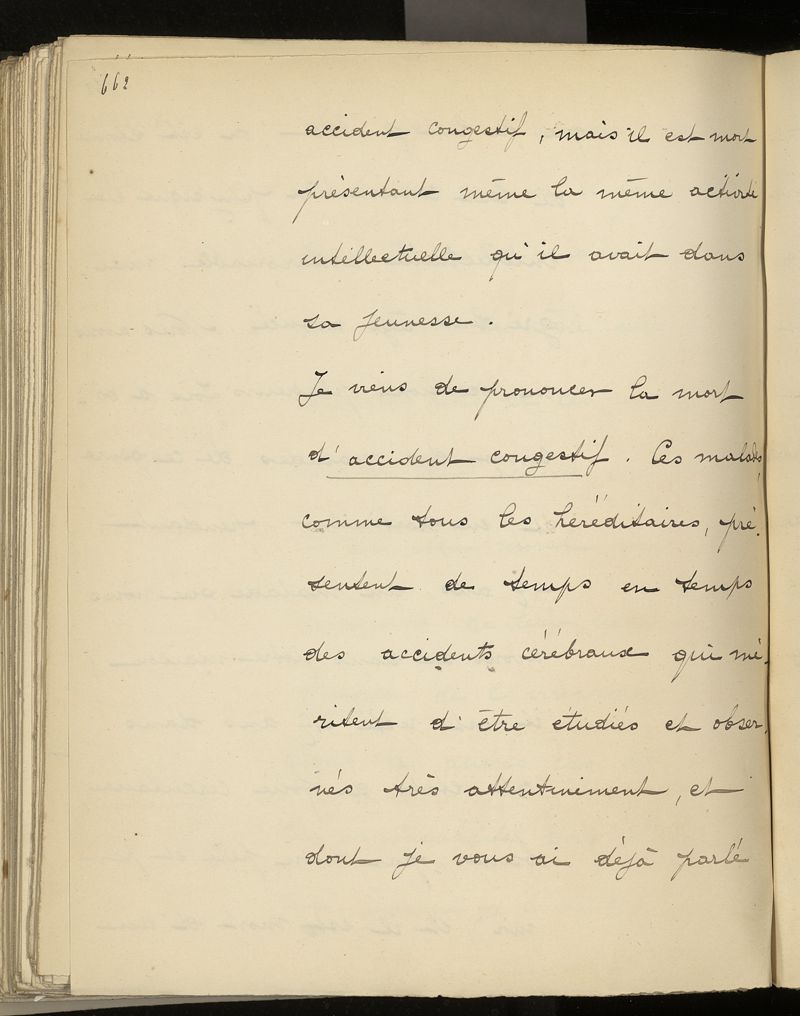 662
accident congestif, mais il est mort
présentant même la même activité
intellectuelle qu'il avait dans
sa jeunesse.
Je viens de prononcer la mort
d'accident congestif. Ces malades,
comme tous les héréditaires, pré-
sentent de temps en temps
des accidents cérébraux qui mé-
ritent d'être étudiés et obser-
vés très attentivement, et
dont je vous ai déjà parlé